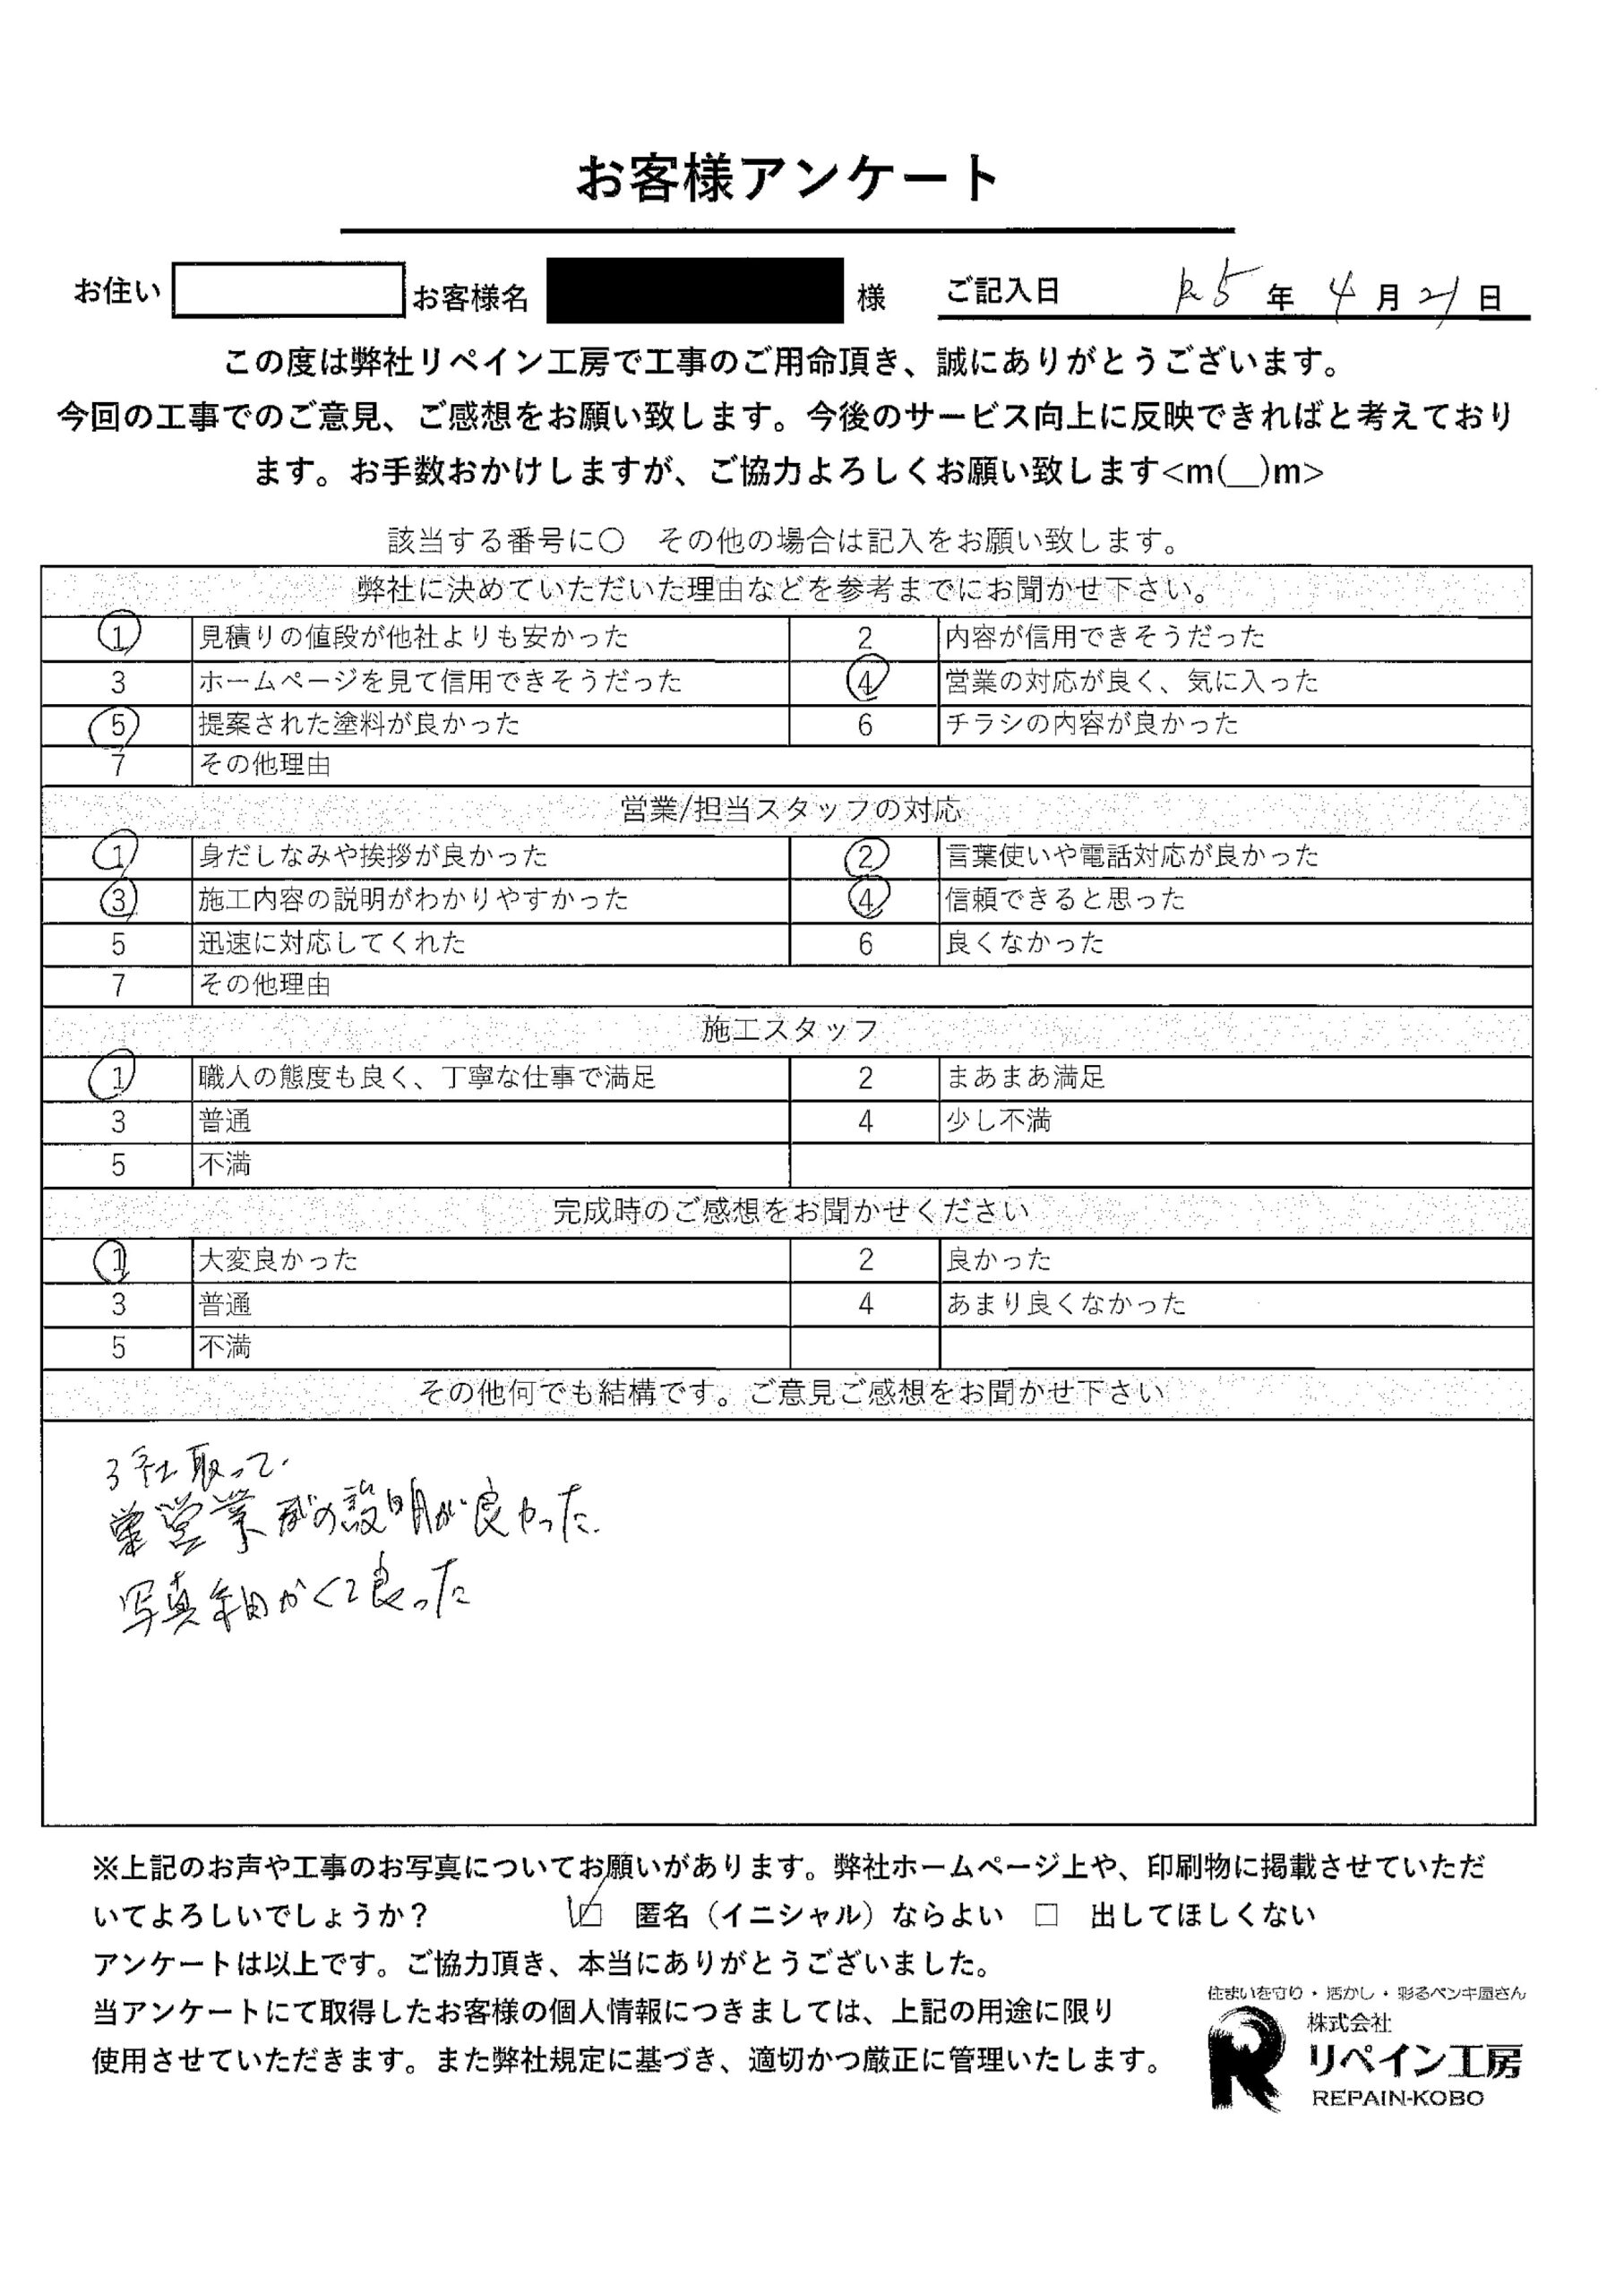 お客様アンケート
お住い お客様名 様 ご記入日 R5年4月21日
この度は弊社リペイン工房で工事のご用命頂き、誠にありがとうございます。
今回の工事でのご意見、ご感想をお願い致します。今後のサービス向上に反映できればと考えており
ます。お手数おかけしますが、ご協力よろしくお願い致します<m(__)m>
該当する番号に○ その他の場合は記入をお願い致します。
弊社に決めていただいた理由などを参考までにお聞かせ下さい。
1 見積りの値段が他社よりも安かった 2 内容が信用できそうだった
3 ホームページを見て信用できそうだった 4 営業の対応が良く、気に入った
5 提案された塗料が良かった 6 チラシの内容が良かった
7 その他理由
営業/担当スタッフの対応
1 身だしなみや挨拶が良かった 2 言葉使いや電話対応が良かった
3 施工内容の説明がわかりやすかった 4 信頼できると思った
5 迅速に対応してくれた 6 良くなかった
7 その他理由
施工スタッフ
1 職人の態度も良く、丁寧な仕事で満足 2 まあまあ満足
3 普通 4 少し不満
5 不満
完成時のご感想をお聞かせください
1 大変良かった 2 良かった
3 普通 4 あまり良くなかった
5 不満
その他何でも結構です。ご意見ご感想をお聞かせ下さい
3社取って.
営業の説明が良かった.
写真細かくて良った
※上記のお声や工事のお写真についてお願いがあります。弊社ホームページ上や、印刷物に掲載させていただ
いてよろしいでしょうか？ ☑ 匿名（イニシャル）ならよい □ 出してほしくない
アンケートは以上です。ご協力頂き、本当にありがとうございました。
当アンケートにて取得したお客様の個人情報につきましては、上記の用途に限り
使用させていただきます。また弊社規定に基づき、適切かつ厳正に管理いたします。
住まいを守り・活かし・彩るペンキ屋さん
株式会社
リペイン工房
REPAIN-KOBO